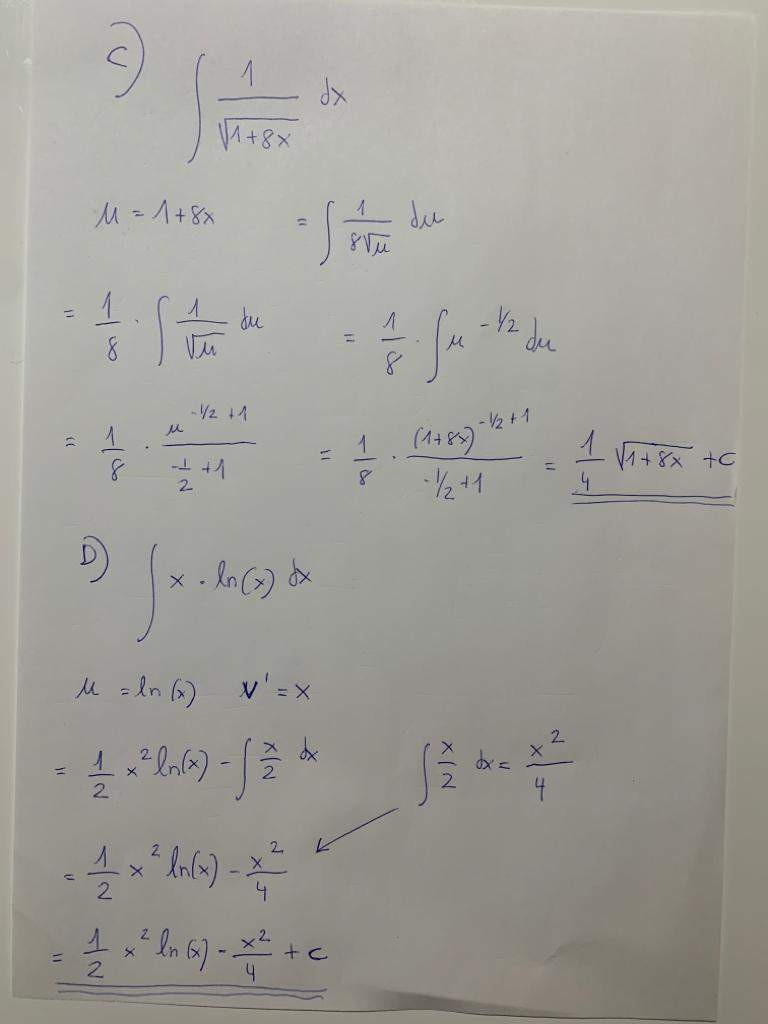 C)
∫ 1/√(1+8x) dx
u = 1+8x = ∫ 1/(8√u) du
= 1/8 · ∫ 1/√u du = 1/8 · ∫ u^(-1/2) du
= 1/8 · u^(-1/2+1)/(-1/2+1) = 1/8 · (1+8x)^(-1/2+1)/(-1/2+1) = 1/4 √(1+8x) + c
D) ∫ x · ln(x) dx
u = ln(x) v' = x
= 1/2 x² ln(x) - ∫ x/2 dx ∫ x/2 dx = x²/4
= 1/2 x² ln(x) - x²/4
= 1/2 x² ln(x) - x²/4 + c